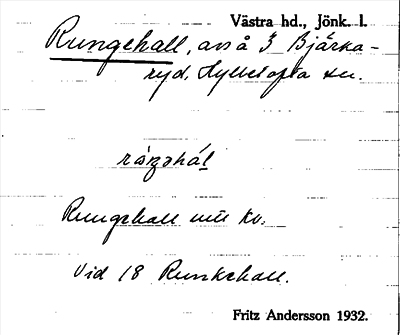 Västra hd., Jönk. l.
Rungehall, avs å 3 Bjärka-
ryd, Hylletofta sn.
Rungehall
Vid 18 Runkehall.
Fritz Andersson 1932.